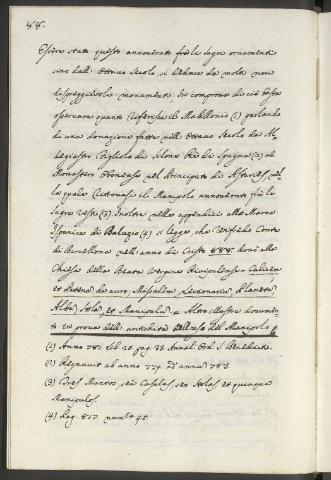 88.
Essere stato questo annoverato fra le sagre ornamenti
sino dall' Ottavo Secolo, si deduce da molti non
dispreggievoli monumenti. In comprova di ciò basta
osservare quanto riferisce il Mabillonio (1) parlando
di una donazione fatta nell' Ottavo Secolo da
figliolo di Silone Rè di Spagna (2) al
Monastero Obonense nel Principato di Asturies, nel
la quale il Manipolo annoverato fra le
sagre vesti (3). Inoltre nell' appendice alla Marca
Ispanica di Baluzio (4) si legge, che Conte
di Barcellona nell' anno di Cristo 888. donò alla
Chiesa della Beata Vergine Rivipulense = Calicem
et Patena de auro, Missalem Lectionarium, Planeta
Alba, Stola, et Manipulu, = Altro illustre documen
to in prova dell' antichità dell' uso del Manipolo
(1) Anno 781. Lib. 25. pag. 33. Annal. Ord. S. Benedict.
(2) Regnavit ab anno 774. ad annu 783.
(3) Tres Mantos, seu Casulas, sex Stolas et quinque
Manipulos.
(4) Pag. 817. num.o 45.